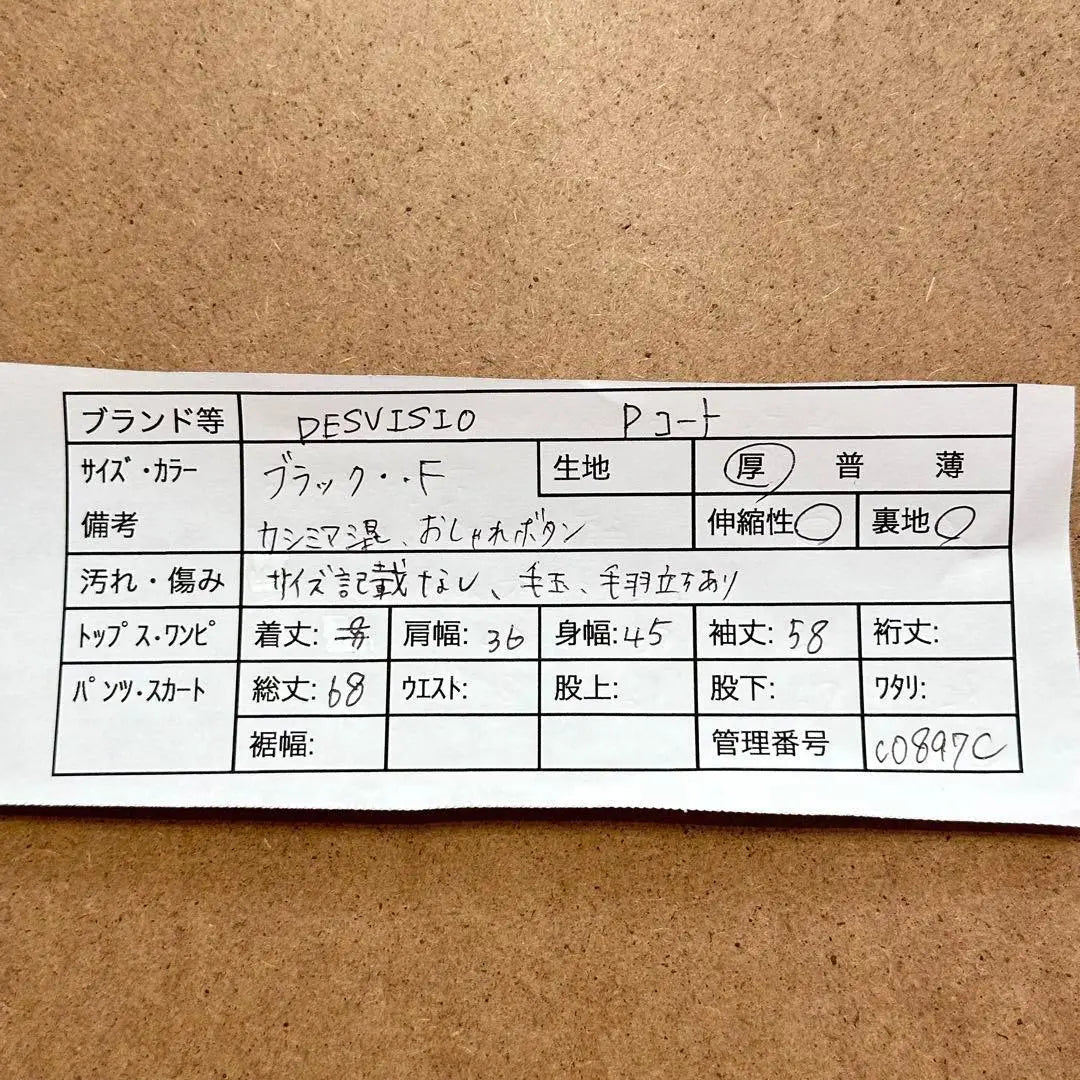 ブランド等 DESVISIO Pコート
サイズ・カラー ブラック・・F 生地 厚 普 薄
備考 カシミヤ混、おしゃれボタン 伸縮性○ 裏地○
汚れ・傷み サイズ記載なし、毛玉、毛羽立ちあり
トップス・ワンピ 着丈: 肩幅: 36 身幅: 45 袖丈: 58 裄丈:
パンツ・スカート 総丈: 68 ウエスト: 股上: 股下: ワタリ:
裾幅: 管理番号 c0897C